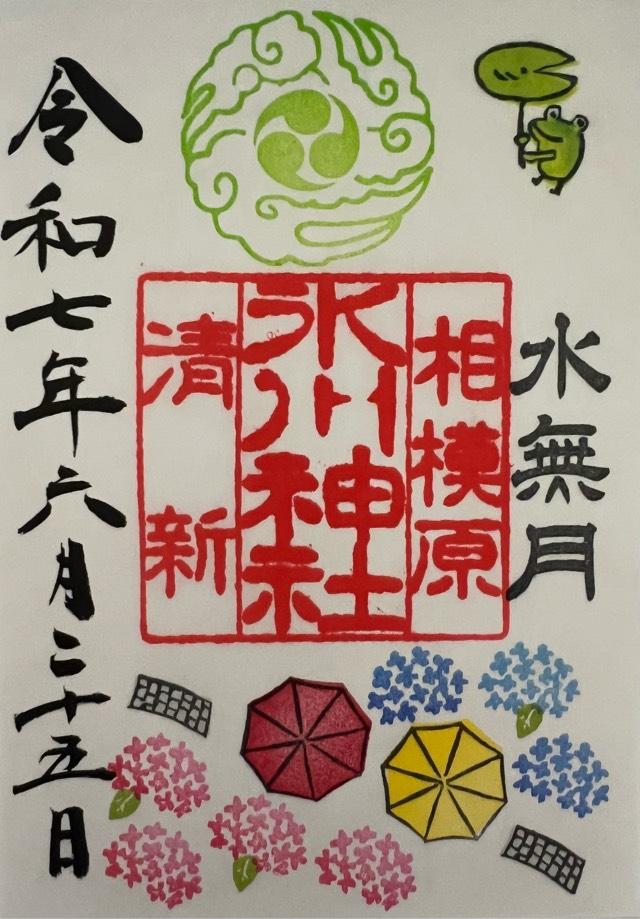 水無月
相模原
氷川神社
清新
令和七年六月二十五日